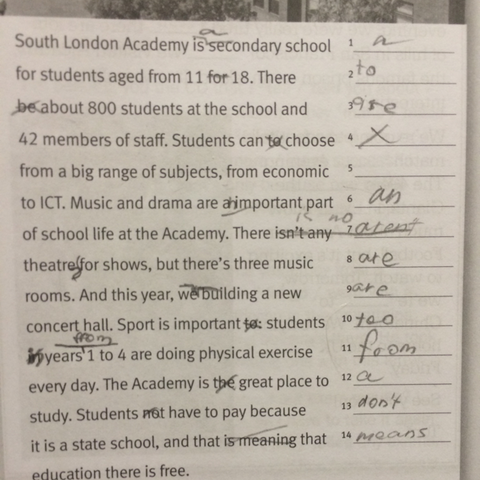 a
South London Academy is secondary school 1 a
for students aged from 11 for 18. There 2 to
be about 800 students at the school and 3 are
42 members of staff. Students can to choose 4 X
from a big range of subjects, from economic 5
to ICT. Music and drama are a important part 6 an
is no
of school life at the Academy. There isn't any 7 arent
theatre for shows, but there's three music 8 are
rooms. And this year, we building a new 9 are
concert hall. Sport is important to: students 10 too
from
in years 1 to 4 are doing physical exercise 11 from
every day. The Academy is the great place to 12 a
study. Students not have to pay because 13 don't
it is a state school, and that is meaning that 14 means
education there is free.